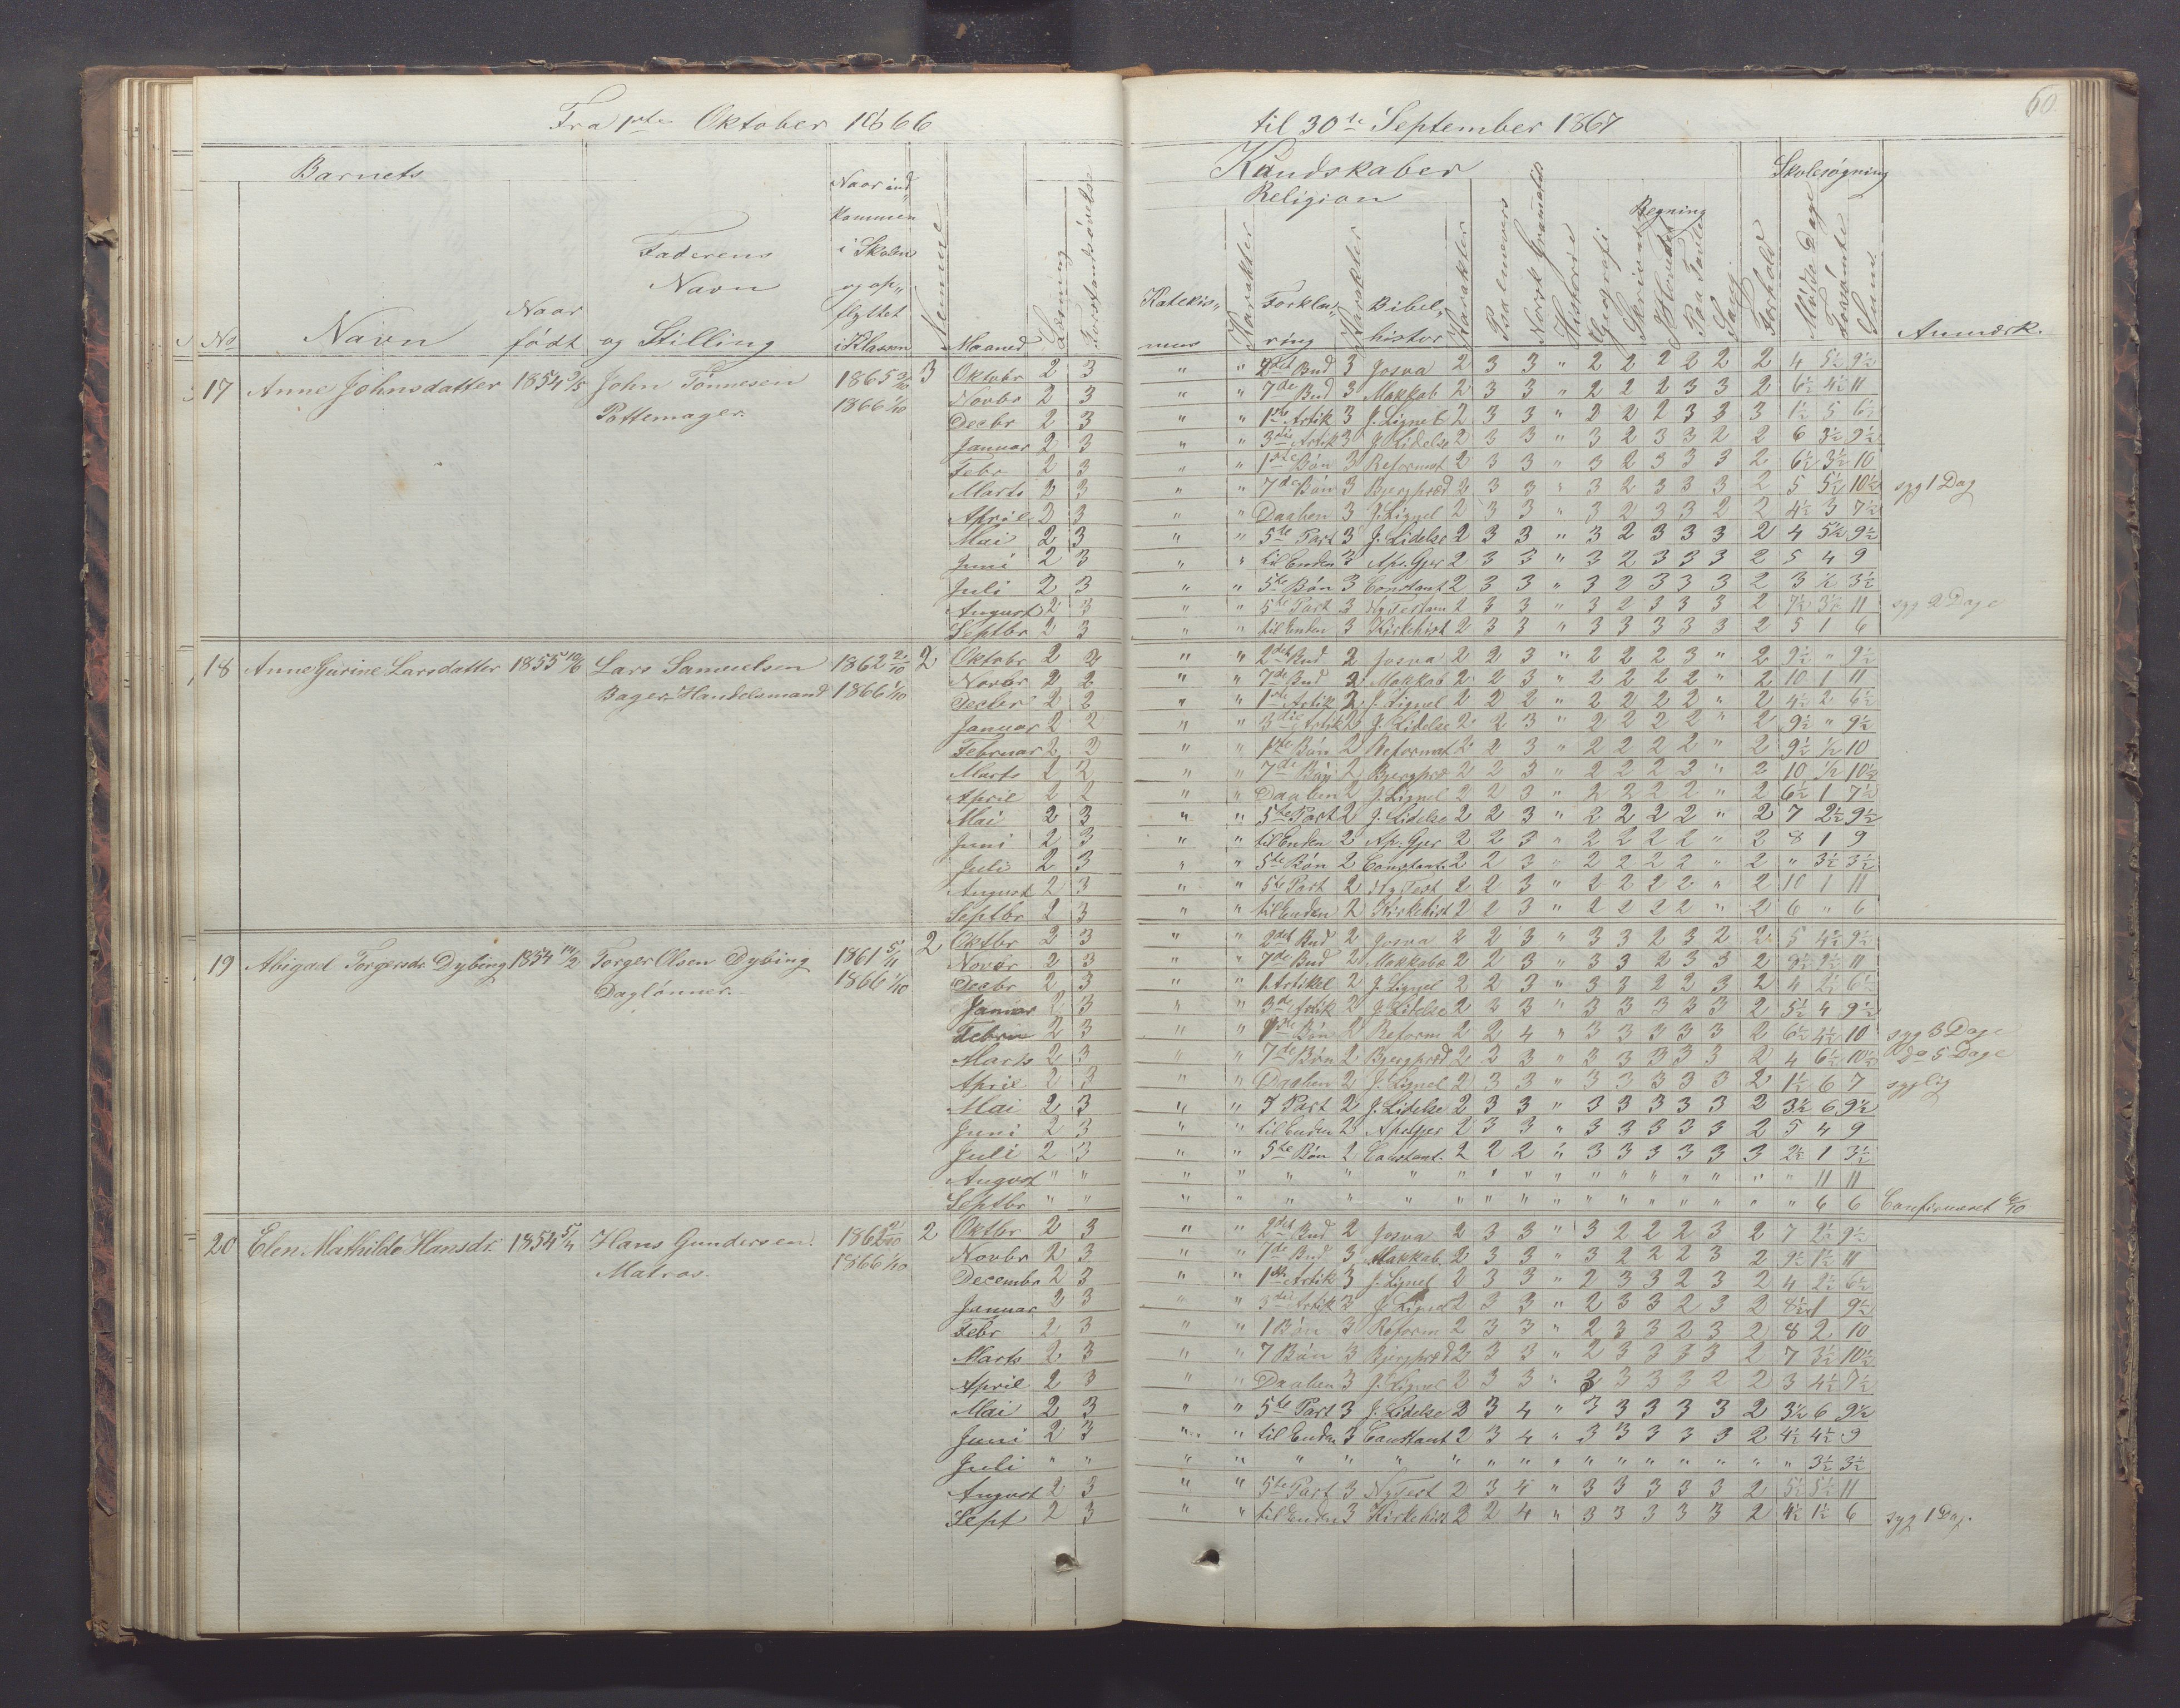 Fra 1ste Oktober 1866 til 30te September 1867
60
Barnets
Kundskaber
Skolesøgning
Religion
Regning
No
Navn
Naar født
Faderens Navn og Stilling
Naar ind„ kommen i Skolen og op„ flyttet i Klassen
Nemme
Maaned
Læsning
Forstandsøvelse
Katekis„ mus
Karakter
Forkla„ ring
Karakter
Bibel„ histor
Karakter
Psalmevers
Norsk Gramatik
Historie
Geografi
Skrivning
I Hovedet
Paa Tavle
Sang
Forhold
Mødte Dage
Forsømte
Sum
Anmærk.
17 Anne Johnsdatter 1854 John Tønnesen 1865 3 Oktobr 2 3 " " 2det Bud 3 Josva 2 3 3 " 2 2 2 2 2 2 4 5½ 9½
Pottemager. 1866 1/10 Novbr 2 3 " " 7de Bud 3 Makkab 2 3 3 " 2 2 2 3 3 2 6½ 4½ 11
Decbr 2 3 " " 1ste Artik 3 J. Lignel 2 3 3 " 2 2 2 3 3 3 1½ 5 6½
Januar 2 3 " " 3die Artik 3 J. Lidelse 2 3 3 " 3 2 3 3 2 2 6 3½ 9½
Febr 2 3 " " 1ste Bøn 3 Reformat 2 3 3 " 3 2 3 3 3 2 6½ 3½ 10
Marts 2 3 " " 7de Bøn 3 Bjergpræd 2 3 3 " 3 2 3 3 3 2 5 5½ 10½ syg 1 Dag
April 2 3 " " Daaben 3 J. Lignel 2 3 3 " 3 2 3 3 2 2 4½ 3 7½
Mai 2 3 " " 5te Part 3 J. Lidelse 2 3 3 " 3 2 3 3 3 2 4 5½ 9½
Juni 2 3 " " til Enden 3 Ap. Gjer 2 3 3 " 3 2 3 3 3 2 5 4 9
Juli 2 3 " " 5te Bøn 3 Constant 2 3 3 " 3 2 3 3 3 2 3 ½ 3½
August 2 3 " " 5te Part 3 Ny Testam 2 3 3 " 3 2 3 3 3 2 7½ 3½ 11 syg 2 Dage
Septbr 2 3 " " til Enden 3 Kirkehist 2 3 3 " 3 3 3 3 3 2 5 1 6
18 Anne Gurine Larsdatter 1855 10/6 Lars Samuelsen 1862 2/10 2 Oktobr 2 2 " " 2det Bud 2 Josva 2 2 3 " 2 2 2 3 " 2 9½ " 9½
Bager Handelsmand 1866 1/10 Novbr 2 2 " " 7de Bud 2 Makkab 2 2 3 " 2 2 2 2 " 2 10 1 11
Decbr 2 2 " " 1ste Artik 2 J. Lignel 2 2 2 " 2 2 2 2 " 2 4½ 2 6½
Januar 2 2 " " 3die Artik 2 J. Lidelse 2 2 3 " 2 2 2 2 " 2 9½ " 9½
Februar 2 2 " " 1ste Bøn 2 Reformat 2 2 3 " 2 2 2 2 " 2 9½ ½ 10
Marts 2 2 " " 7de Bøn 2 Bjergpræ 2 2 3 " 2 2 2 3 " 2 10 ½ 10½
April 2 2 " " Daaben 2 J. Lignel 2 2 3 " 2 2 2 2 " 2 6½ 1 7½
Mai 2 3 " " 5te Part 2 J. Lidelse 2 2 3 " 2 2 2 2 " 2 7 2½ 9½
Juni 2 3 " " til Enden 2 Ap. Gjer 2 2 3 " 2 2 2 2 " 2 8 1 9
Juli 2 3 " " 5te Bøn 2 Constant. 2 2 3 " 2 2 2 2 " 2 " 3½ 3½
August 2 3 " " 5te Part 2 Ny Test 2 2 3 " 2 2 2 2 " 2 10 1 11
Septbr 2 3 " " til Enden 2 Kirkehist 2 2 3 " 2 2 2 2 " 2 6 " 6
19 Abigael Torgersdr. Dybing 1854 14/2 Torger Olsen Dybing 1861 5/11 2 Oktbr 2 3 " " 2det Bud 2 Josva 2 2 3 " 3 3 2 3 2 2 5 4½ 9½
Daglønner. 1866 1/10 Novbr 2 3 " " 7de Bud 2 Makkabæ 2 2 3 " 3 3 2 3 3 2 9½ 11
Decbr 2 3 " " 1 Artikel 2 J. Lignel 2 2 3 " 3 3 2 2 3 2 4 2½ 6½
Januar 2 3 " " 3die Artik 2 J. Lidelse 2 3 3 " 3 3 3 3 3 2 5½ 4 9½
Februar 2 3 " " 1ste Bøn 2 Reform 2 2 4 " 3 3 3 3 3 2 6½ 4½ 10 syg 3 Dage
Marts 2 3 " " 7de Bøn 2 Bjergpræd 2 3 3 " 3 3 3 3 3 2 4 6½ 10½ Do 5 Dage
April 2 3 " " Daaben 2 J. Lignel 2 3 3 " 3 3 3 3 3 2 1½ 6 7 syglig
Mai 2 3 " " 5 Part 2 J. Lidelse 2 3 3 " 3 3 3 3 3 2 3½ 6 9½
Juni 2 3 " " til Enden 2 Ap. Gjer 2 3 3 " 3 3 3 3 3 2 5 4 9
Juli 2 3 " " 5te Bøn 2 Constant. 2 2 2 " 3 3 3 3 3 3 2½ 1 3½
August " " " " " " " " " " " " " " " " " " " 11 11
Septbr " " " " " " " " " " " " " " " " " " " 6 6 Confirmeret 6/10
20 Elen Mathilde Hansdr. 1854 5/4 Hans Gundersen 1862 2/10 2 Oktbr 2 3 " " 2det Bud 2 Josva 2 3 3 " 3 2 2 2 3 2 7 2½ 9½
Matros. 1866 1/10 Novbr 2 3 " " 7de Bud 3 Makkab 2 3 3 " 3 2 2 2 3 2 9½ 1½ 11
Decembr 2 3 " " 1ste Artik 3 J. Lignel 2 3 3 " 2 3 3 2 3 2 4 2½ 6½
Januar 2 3 " " 3die Artik 3 J. Lignel 2 3 3 " 2 3 3 2 3 2 8½ 1 9½
Febr 2 3 " " 1 Bøn 3 Reform 2 3 3 " 2 3 3 2 3 2 8 2 10
Marts 2 3 " " 7 Bøn 3 Bjergpræd 2 3 3 " 2 3 3 3 3 2 7 3½ 10½
April 2 3 " " Daaben 3 J. Lignel 2 3 3 " 3 3 3 3 2 2 3 4½ 7½
Mai 2 3 " " 5te Part 3 J. Lidelse 2 3 4 " 3 3 3 3 3 2 3½ 6 9½
Juni 2 3 " " til Enden 3 Constant 2 3 4 " 3 3 3 3 3 2 4½ 4½ 9
Juli " " " " " " " " " " " " " " " " " " " 3½ 3½
August 2 3 " " 5te Part 3 Ny Test 2 3 4 " 3 3 3 3 3 2 5½ 5½ 11
Sept 2 3 " " til Enden 3 Kirkehis 2 2 4 " 3 3 3 3 3 2 4½ 1½ 6 syg 1 Dag.